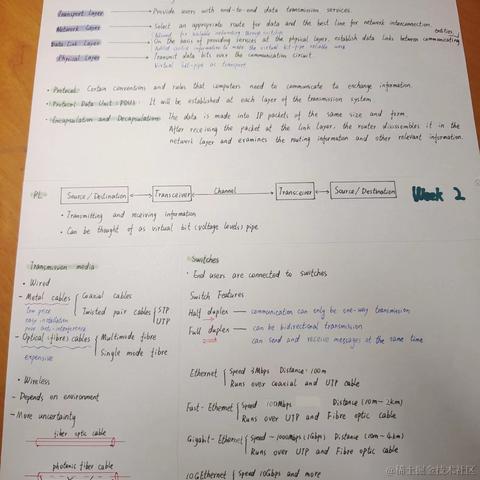 Transport Layer → Provide users with end-to-end data transmission services.
Network Layer → Select an appropriate route for data and the best line for network interconnection.
entities.
Data Link Layer → On the basis of providing services at the physical layer, establish data links between communicating
Added control information to make the virtual bit-pipe reliable work
Physical Layer → Transmit data bits over the communication circuit.
Virtual bit-pipe as transport
• Protocol: Certain conventions and rules that computers need to communicate to exchange information.
• Protocol Data Unit (PDUs): It will be established at each layer of the transmission system
• Encapsulation and Decapsulation: The data is made into IP packets of the same size and form.
After receiving the packet at the link layer, the router disassembles it in the
network layer and examines the routing information and other relevant information.
PL
Source/Destination
Transceiver
Channel
Transceiver
Source/Destination
Week 2
• Transmitting and receiving information
• Can be thought of as virtual bit (voltage levels) pipe
Transmission media
• Wired
- Metal cables
Coaxial cables
low price
Twisted pair cables
STP
UTP
easy installation
poor anti-interference
- Optical (fibre) cables
Multimode fibre
Single mode fibre
expensive
• Wireless
- Depends on environment
- More uncertainty
fiber optic cable
photonic fiber cable
Switches
• End users are connected to switches
Switch Features
Half duplex — communication can only be one-way transmission
Full duplex — can be bidirectional transmission
can send and receive messages at the same time
Ethernet
Speed Mbps Distance: 100m
Runs over coaxial and UTP cable
Fast-Ethernet
Speed 100Mbps Distance (10m—2km)
Runs over UTP and Fibre optic cable
Gigabit-Ethernet
Speed—1000Mbps (1Gbps) Distance (10m—4km)
Runs over UTP and Fibre optic cable
10GEthernet
Speed 10Gbps and more
@稀土掘金技术社区